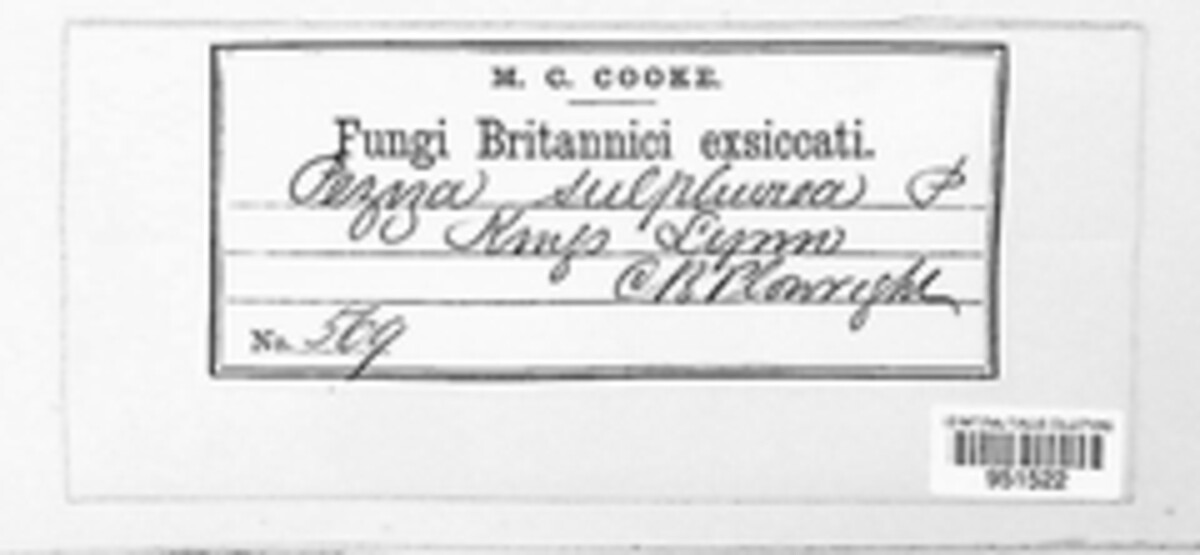 M. C. COOKE.
Fungi Britannici exsiccati.
Peziza sulphurea P
Kings Lynn
C B Plowright
No. 569
951522